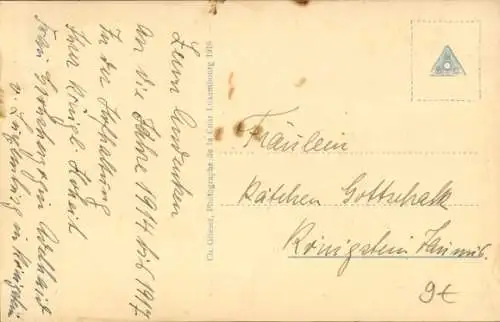 Zum Andenken
an die Jahre 1914 bis 1917
In der Hofhaltung
Ihrer Königl. Hoheit
Frau Großherzogin Adelheid
v. Luxemburg in Königstein
Ch. Grieser, Photographe de la Cour Luxembourg 1916
Fräulein
Kätchen Gottschalk
Königstein Taunus.
9€